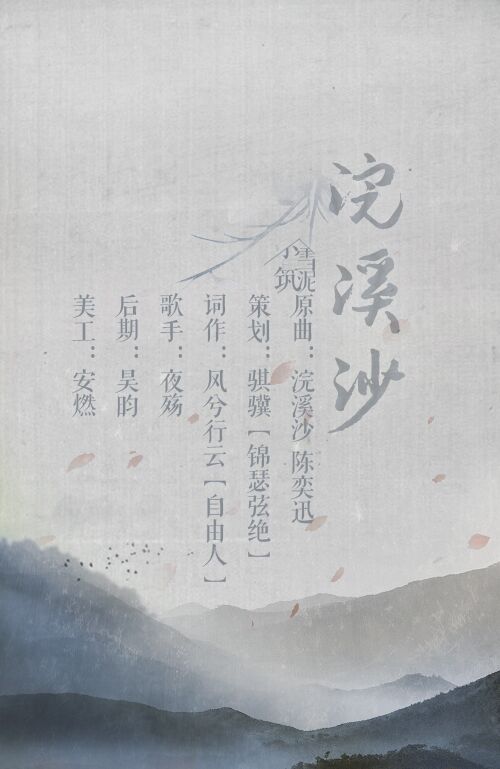 浣溪沙
小雪泥筑
原曲：浣溪沙 陈奕迅
策划：骐骥［锦瑟弦绝］
词作：风兮行云［自由人］
歌手：夜殇
后期：昊昀
美工：安燃